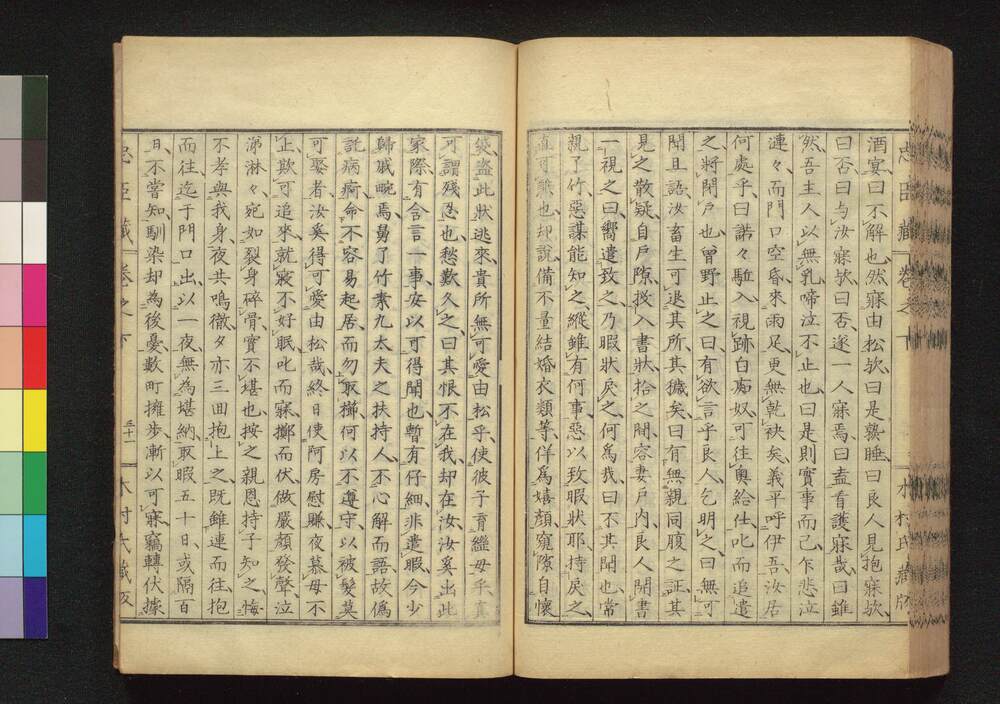 酒宴曰不解也然寐由松欤曰是熟睡曰良人見抱寐欤
曰否曰与汝寐欤曰否遂一人寐焉曰盍看護寐哉曰雖
然吾主人以無乳啼泣不止也曰是則實事而己乍悲泣
漣々而門口空昏來雨足更無乾袂矣義平呼伊吾汝居
何處乎曰諾々駈入視跡白痴奴可往奥給仕叱而追遣
之將閉戸也曾野止之曰有欲言乎良人乞明之曰無可
聞且語汝畜生可退其所其穢矣曰有無親同腹之証其
見之散疑自戸隙投入書狀拾之間容妻戸内良人開書
一視之曰嚮遣致之乃暇狀戻之何為我曰不其聞也常
親了竹惡謀能知之縱雖有何事惡以致暇狀耶持戻之
可 也却説備不量結婚衣類等佯為嬉顔窺隙自懷
盗此狀逃來貴所無可愛由松乎使彼子育繼母乎真
可謂殘忍也愁歎久之曰其恨不在我却在汝汝奚出此
家際有含言一事安以可得聞也暫有仔細非遣暇今少
歸戚畹焉舅了竹素九太夫之扶持人不心解而語故偽
託病痾命不容易起居而勿取櫛何以不遵守以被髪莫
可娶者汝奚得可愛由松哉終日使阿房慰賺夜慕母不
止欺可追來就寢不好眠叱而寐擲而伏做嚴顔發聲泣
涕淋々宛如裂身碎骨實不堪也按之親恩持子知之悔
不孝與我身夜共鳴徹夕亦三囬抱上之既雖連而往抱
而往迄于門口出以一夜無為堪納取暇五十日或隔百
日不嘗知馴染却為後憂數町擁歩漸以可寐竊轉伏據
忠臣藏 卷之下
三十一
木村氏藏版
忠臣藏 卷之下
木村氏藏版